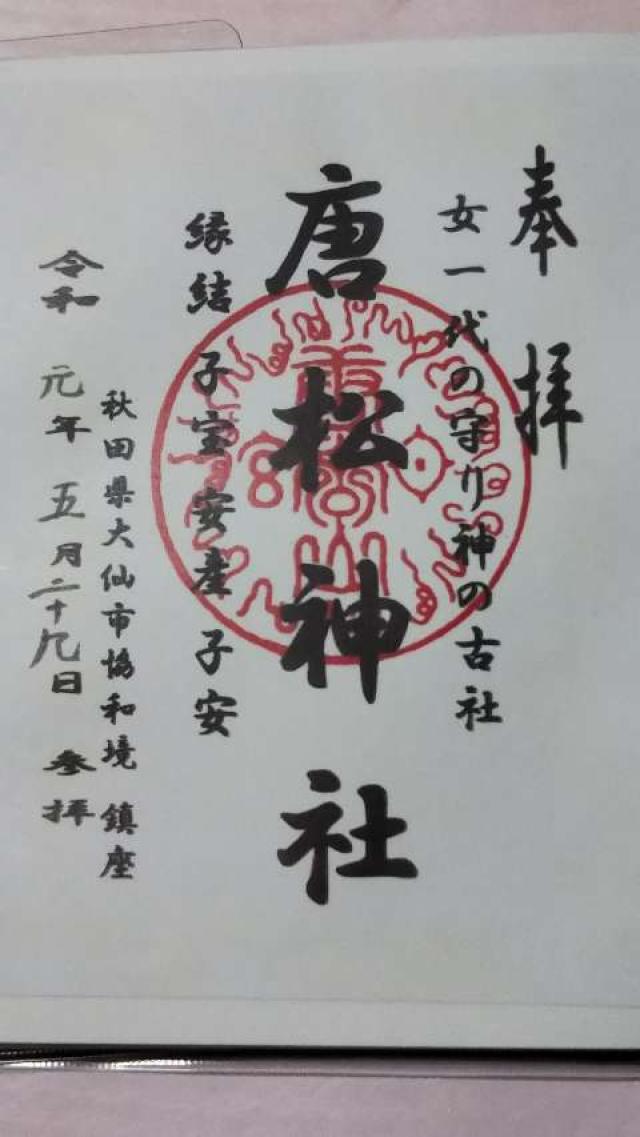 奉拝
女一代の守り神の古社
唐松神社
縁結 子宝 安産 子安
秋田県大仙市協和境 鎮座
令和 元年 五月二十九日 参拝